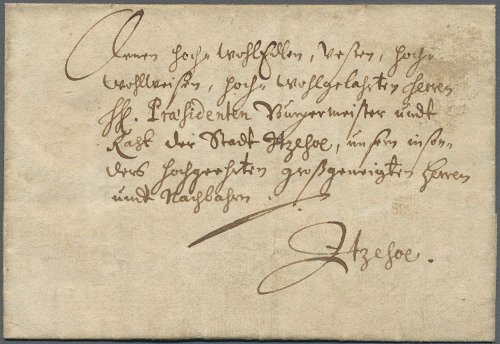 Denen hoch- WohlEdlen, Vesten, hoch-
wohlweisen, hoch- wohlgelahrten Herren
HH. Præsidenten Burgermeister undt
Raht der Stadt Itzehoe, unsern inson-
ders hochgeehrten großgeneigten Herren
undt Nachbahrn.
Itzehoe.